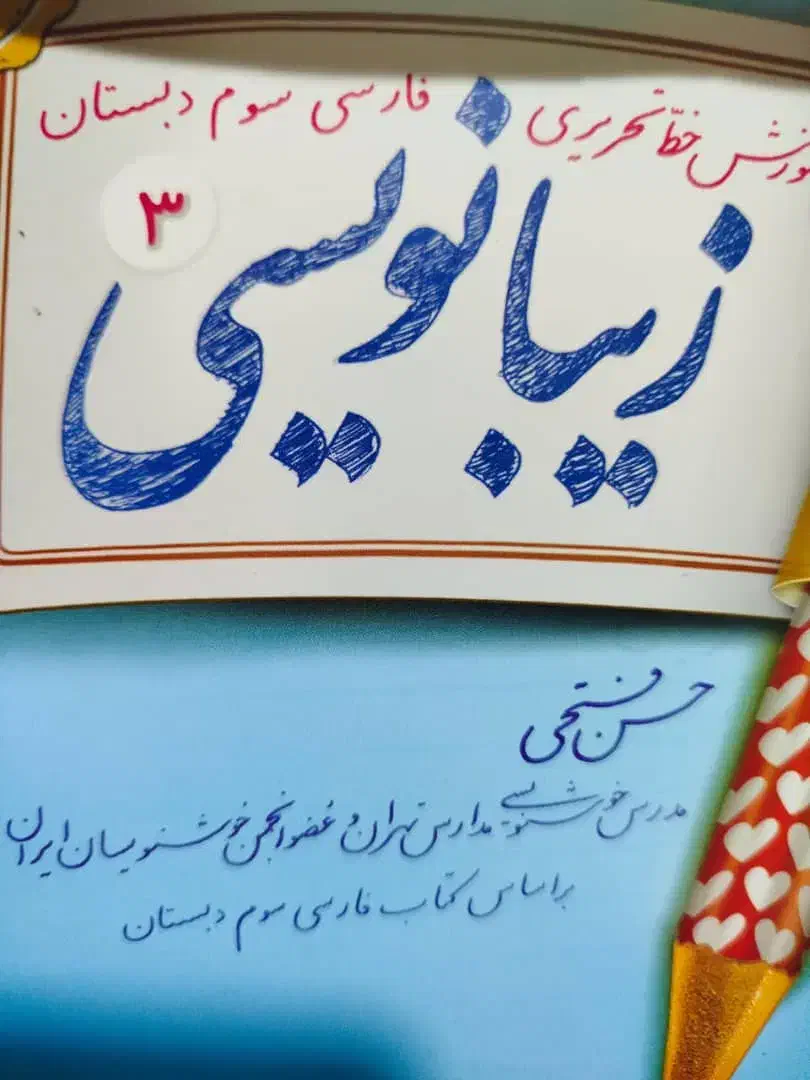 آموزش خطّ تحریری فارسی سوم دبستان
زیبانویسی
۳
حسن فتحی
مدرس خوشنویسی مدارس تهران و عضو انجمن خوشنویسان ایران
براساس کتاب فارسی سوم دبستان